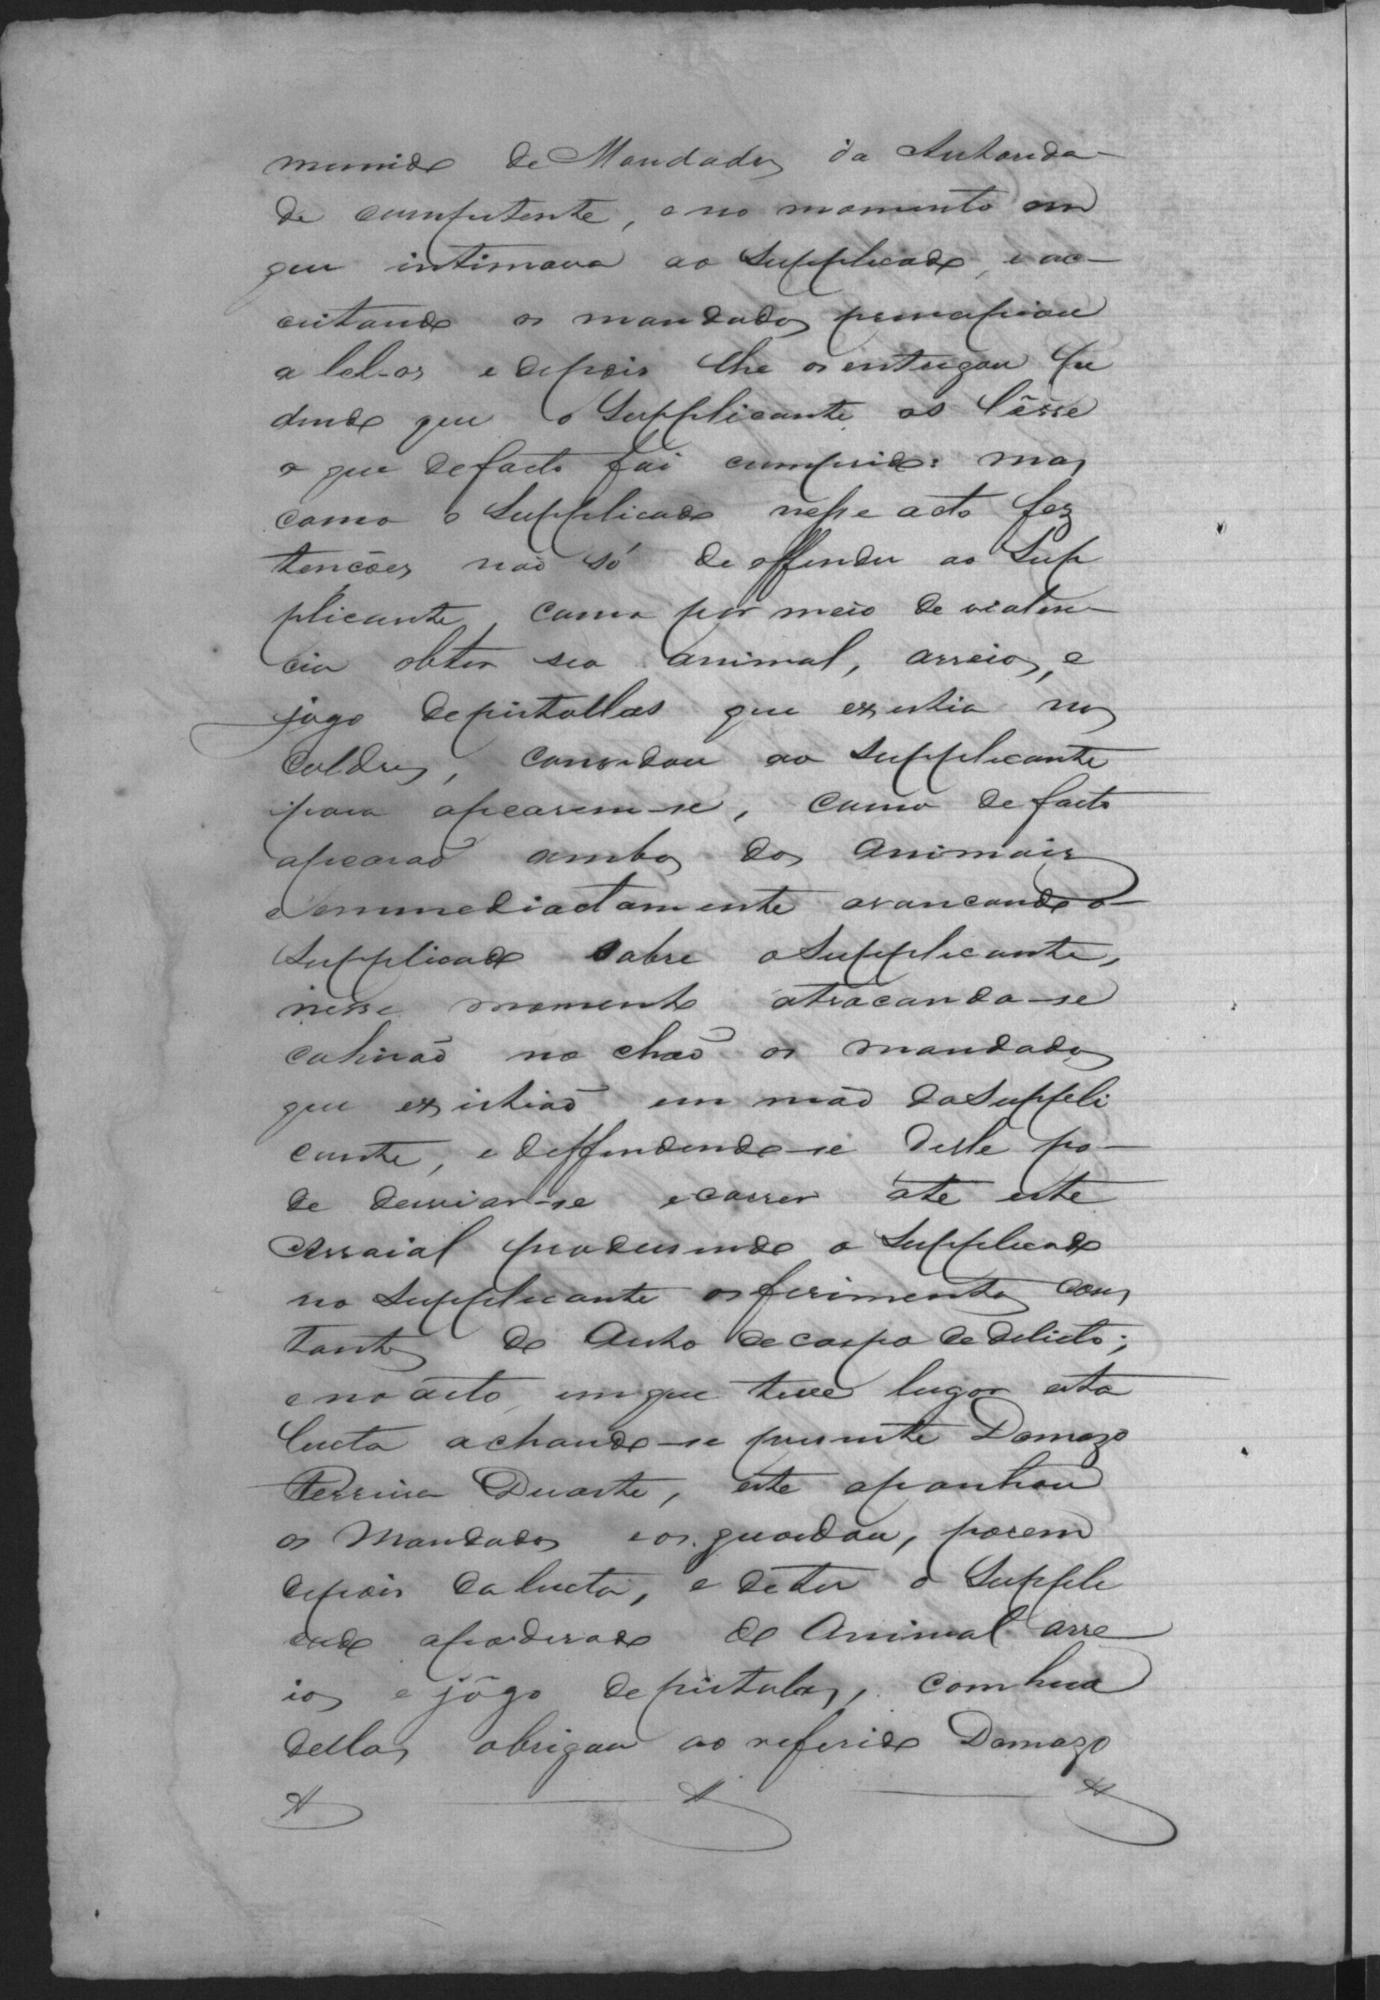 munido de Mandados da Authorida-
de cumpetente, e no momento em
que intimava ao Supplicado, e ac-
ceitando os mandados principiou
a lel-os e depois lhe os entregou pe
dindo que o Supplicante os lêsse
o que de facto foi cumprido: mas
como o Supplicado nesse acto fez
tencões não só de offender ao Sup
plicante, como por meio de violen-
cia obter seo animal, arreios, e
jogo de pistollas que existia nos
coldres, convidou ao Supplicante
para apearem-se, como de facto
apearaõ ambos dos animais
e emmediactamente avancando o
Supplicado sobre o Supplicante,
nesse momento atracando-se
cahiraõ no chaõ os mandados
que existiaõ em mão do Suppli
cante, e deffendendo-se delle po-
de desviar-se e correr até este
Arraial produsindo o Supplicado
no Supplicante os ferimentos cons
tantes do Auto de corpo de delicto;
e no acto em que teve lugar esta
lucta achando-se presente Damazo
Ferreira Duarte, este apanhou
os Mandados e os guardou, porem
depois da lucta, e de ter o Suppli
cado apoderado do Animal arre
ios e jôgo de pistolas, com hua
dellas obrigou ao referido Damazo